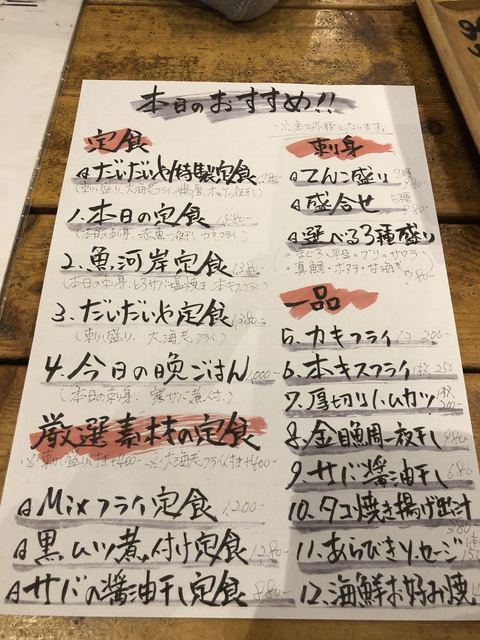 本日のおすすめ!!
※全て外税となります。
定食
日だいだいや特製定食
1.本日の定食
(本日の刺身、赤魚一夜干し、カキフライ)
2.魚河岸定食 1380-
3.だいだいや定食 1380-
(刺し盛り、大海老フライ)
4.今日の晩ごはん 1,000-
(本日の刺身、寒サバ煮付)
厳選素材の定食
※刺し盛り付き+400- ※大海老フライ付き+400-
日Mixフライ定食 1200-
日黒ムツ煮付け定食 1280-
日サバの醤油干し定食 880-
刺身
日てんこ盛り
日盛合せ
日選べる3種盛り
真鯛・ホタテ・甘海老
一品
5.カキフライ 1コ 200-
6.本キスフライ 1枚 250
7.厚切りハムカツ 1枚
8.金目鯛一夜干し 980-
9.サバ醤油干し 680-
10.タコ焼き揚げ出汁
11.あらびきソーセージ
12.海鮮お好み焼